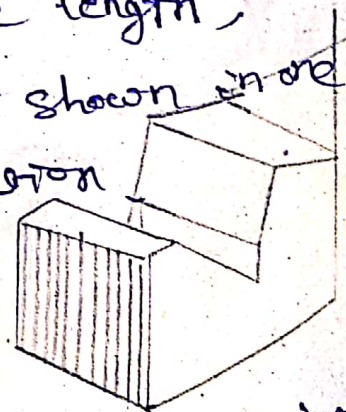 length,
shown in one